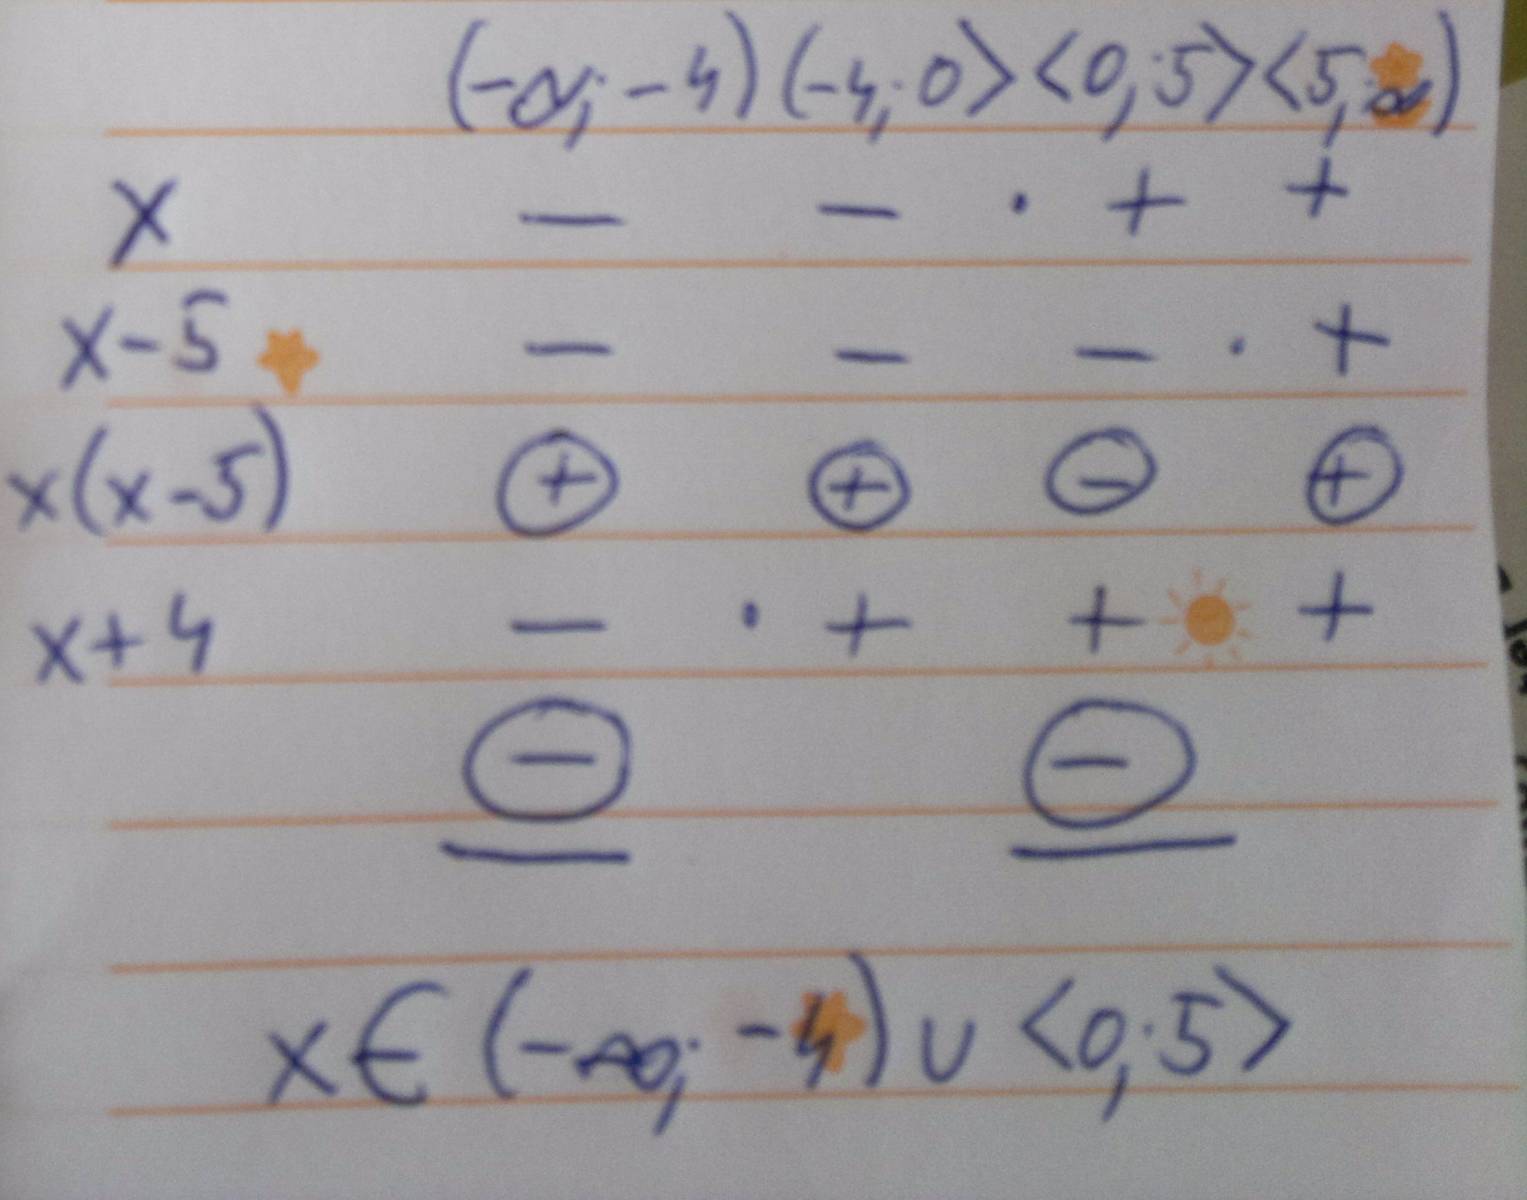 (-∞; -4) (-4; 0> <0; 5> <5; ∞)
x − − · + +
x-5 − − − · +
x(x-5) + + − +
x+4 − · + + +
− −
x ∈ (-∞; -4) ∪ <0; 5>